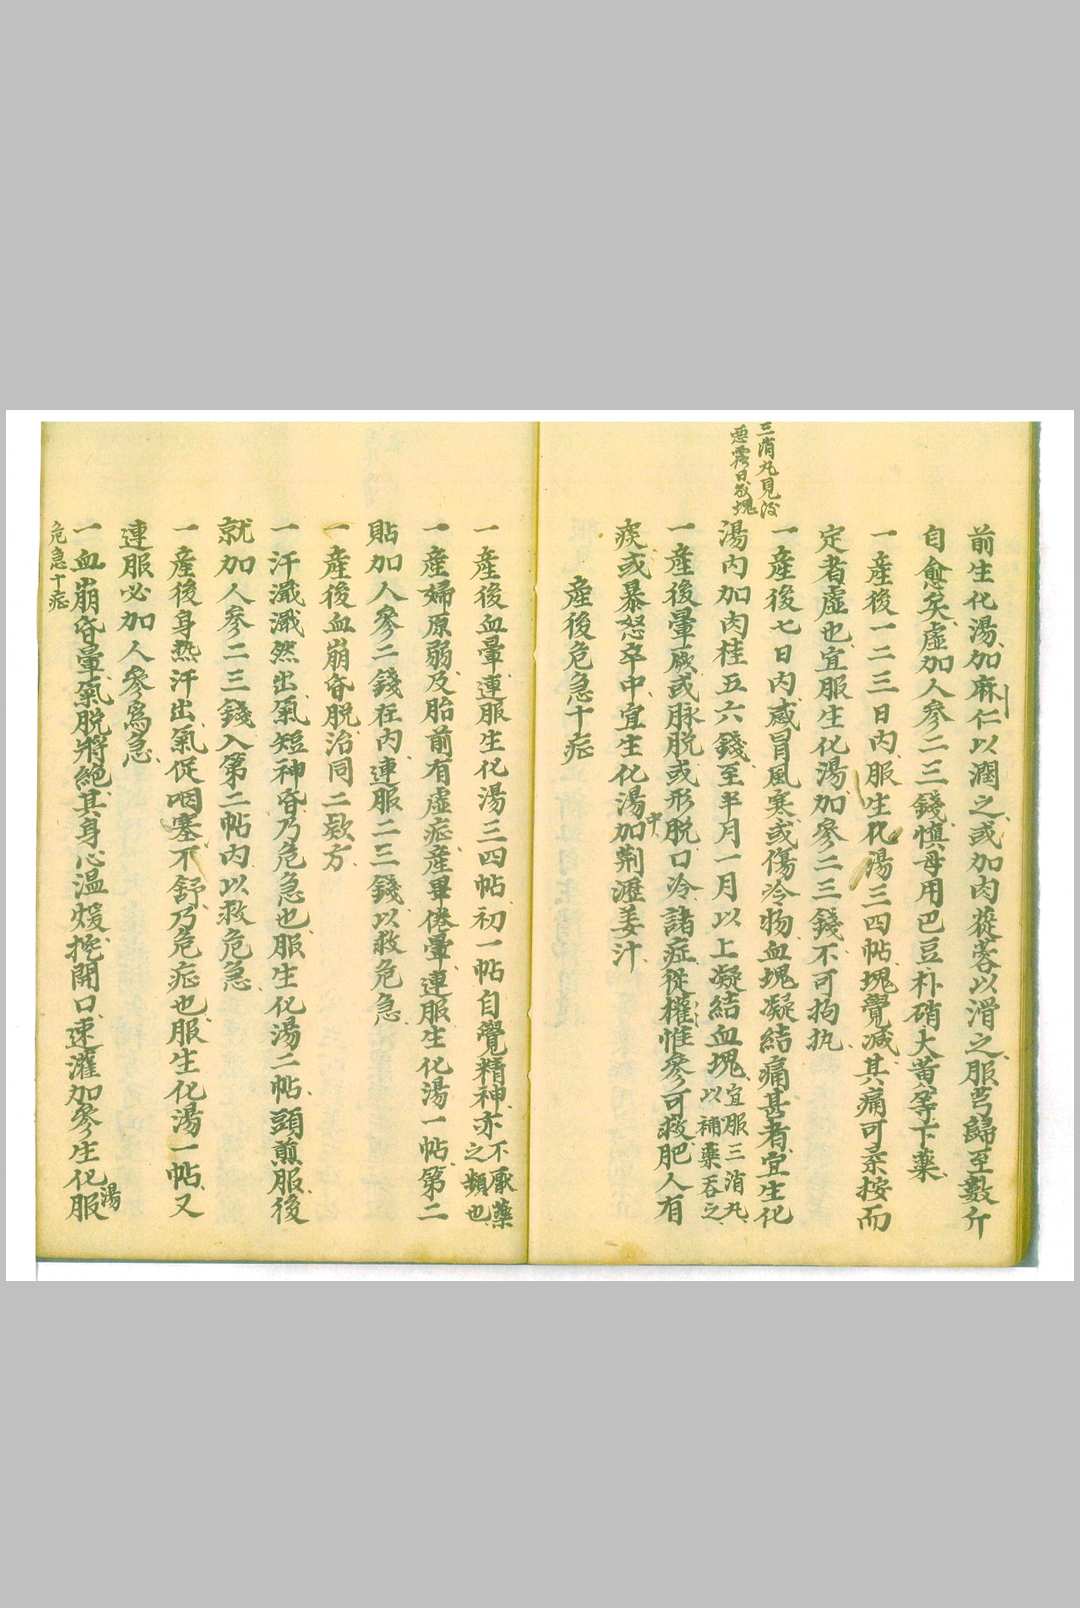 前生化湯加麻仁以潤之或加肉蓯蓉以滑之服芎歸至數斤
自愈矣虛加人參二三錢慎毋用巴豆朴硝大黃等下藥
一產後一二三日內服生化湯三四帖塊覺減其痛可柔按而
定者虛也宜服生化湯加參二三錢不可拘執
一產後七日內感冒風寒或傷冷物血塊凝結痛甚者宜生化
三消丸見後
惡露日敘塊
湯內加肉桂五六錢至半月一月以上凝結血塊宜服三消丸以補藥吞之
一產後暈厥或脉脱或形脱口冷諸症從權惟參可救肥人有
痰或暴怒卒中宜生化湯中加荊瀝姜汁
產後危急十症
一產後血暈連服生化湯三四帖初一帖自覺精神亦不厭藥之類也
一產婦原弱及胎前有虛症產畢倦暈連服生化湯一帖第二
貼加人參二錢在內連服二三錢以救危急
一產後血崩昏脱治同二欵方
一汗濈濈然出氣短神昏乃危急也服生化湯二帖頭煎服後
就加人參二三錢入第二帖內以救危急
一產後身熱汗出氣促咽塞不舒乃危症也服生化湯一帖又
連服必加人參爲急
一血崩昏暈氣脱將絕其身心溫煖挖開口速灌加參生化湯服
危急十症